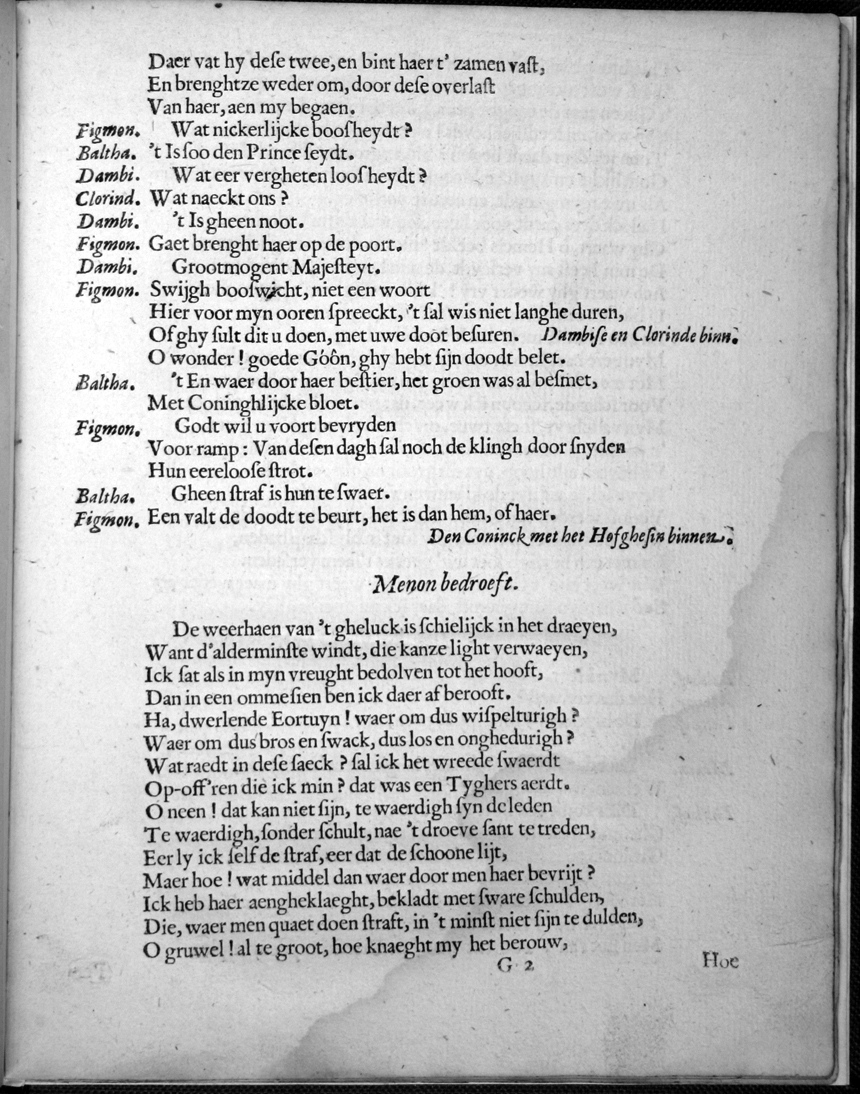 Daer vat hy deſe twee, en bint haer t' zamen vaſt,
En brenghtze weder om, door deſe overlaſt
Van haer, aen my begaen.
Figmon. Wat nickerlijcke booſheydt?
Baltha. 't Is ſoo den Prince ſeydt.
Dambi. Wat eer vergheten looſheydt?
Clorind. Wat naeckt ons?
Dambi. 't Is gheen noot.
Figmon. Gaet brenght haer op de poort.
Dambi. Grootmogent Majeſteyt.
Figmon. Swijgh booſwicht, niet een woort
Hier voor myn ooren ſpreeckt, 't ſal wis niet langhe duren,
Of ghy ſult dit u doen, met uwe doot beſuren. Dambiſe en Clorinde binn.
O wonder! goede Góôn, ghy hebt ſijn doodt belet.
Baltha. 't En waer door haer beſtier, het groen was al beſmet,
Met Coninghlijcke bloet.
Figmon. Godt wil u voort bevryden
Voor ramp: Van deſen dagh ſal noch de klingh door ſnyden
Hun eerelooſe ſtrot.
Baltha. Gheen ſtraf is hun te ſwaer.
Figmon. Een valt de doodt te beurt, het is dan hem, of haer.
Den Coninck met het Hofgheſin binnen.
Menon bedroeft.
De weerhaen van 't gheluck is ſchielijck in het draeyen,
Want d'alderminſte windt, die kanze light verwaeyen,
Ick ſat als in myn vreught bedolven tot het hooft,
Dan in een ommeſien ben ick daer af berooft.
Ha, dwerlende Eortuyn! waer om dus wiſpelturigh?
Waer om dus bros en ſwack, dus los en onghedurigh?
Wat raedt in deſe ſaeck? ſal ick het wreede ſwaerdt
Op-off'ren die ick min? dat was een Tyghers aerdt.
O neen! dat kan niet ſijn, te waerdigh ſyn de leden
Te waerdigh, ſonder ſchult, nae 't droeve ſant te treden,
Eer ly ick ſelf de ſtraf, eer dat de ſchoone lijt,
Maer hoe! wat middel dan waer door men haer bevrijt?
Ick heb haer aengheklaeght, bekladt met ſware ſchulden,
Die, waer men quaet doen ſtraft, in 't minſt niet ſijn te dulden,
O gruwel! al te groot, hoe knaeght my het berouw,
G 2 Hoe